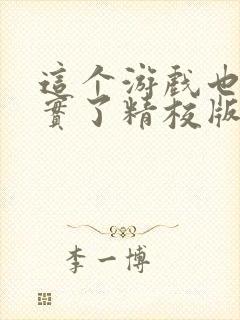 這个游戲也
實了精校版
李一博